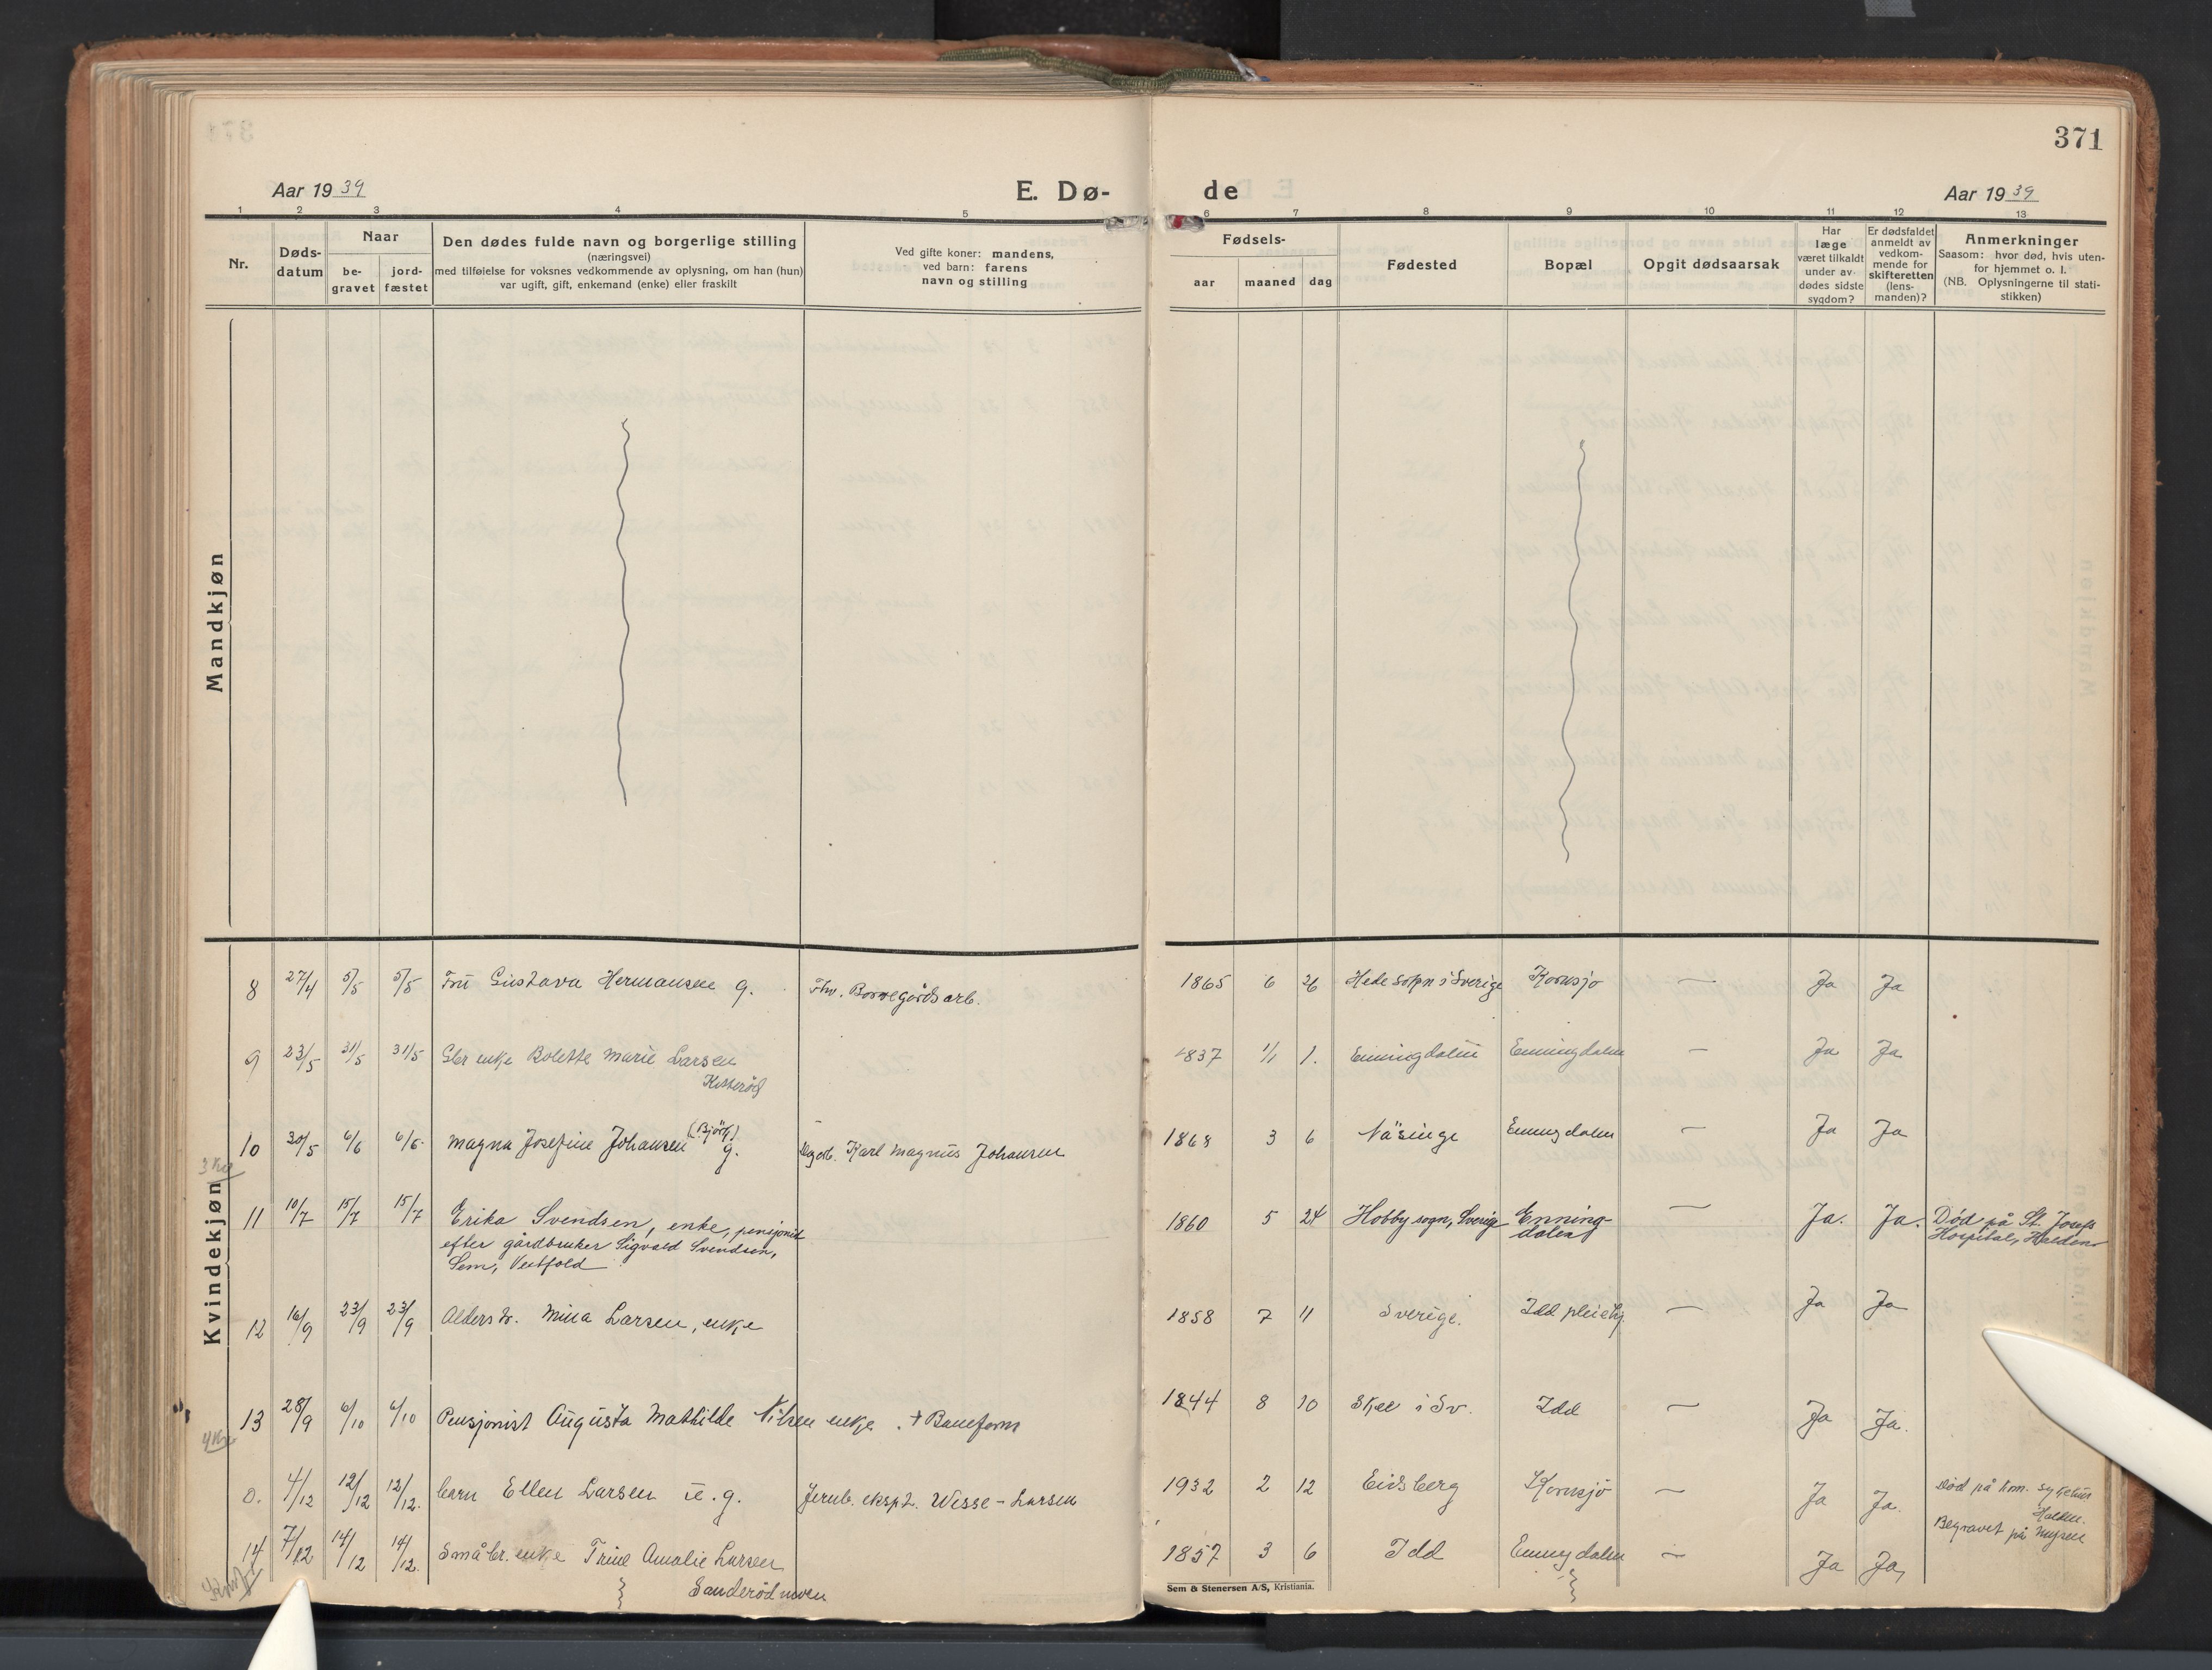 371
Aar 1939
E. Dø-
de
Aar 1939
1 2 3 4 5 6 7 8 9 10 11 12 13
Nr.
Døds-
datum
Naar
be-
gravet
jord-
fæstet
Den dødes fulde navn og borgerlige stilling
(næringsvei)
med tilføielse for voksnes vedkommende av oplysning, om han (hun)
var ugift, gift, enkemand (enke) eller fraskilt
Ved gifte koner: mandens,
ved barn: farens
navn og stilling
Fødsels-
aar maaned dag
Fødested
Bopæl
Opgit dødsaarsak
Har
læge
været tilkaldt
under av-
dødes sidste
sygdom?
Er dødsfaldet
anmeldt av
vedkom-
mende for
skifteretten
(lens-
manden)?
Anmerkninger
Saasom: hvor død, hvis uten-
for hjemmet o. l.
(NB. Oplysningerne til stati-
stikken)
Mandkjøn
Kvindekjøn
8 27/4 5/5 5/5 Fru Gustava Hermansen g. Fhv. Borregårdsarb. 1865 6 26 Hede sokn i Sverige Kornsjø — Ja Ja
9 23/5 31/5 31/5 Gbr enke Bolette Marie Larsen 1837 1/1 1. Enningdalen Enningdalen — Ja Ja
Kisterød
(Bjørk)
10 30/5 6/6 6/6 Magna Josefine Johansen g. Karl Magnus Johansen 1868 3 6 Näsinge Enningdalen — Ja Ja
11 10/7 15/7 15/7 Erika Svendsen, enke, pensjonist 1860 5 24 Hobby sogn, Sverige Enning- — Ja. Ja. Død på St. Josefs
efter gårdbruker Sigvald Svendsen, dalen Hospital, Halden
Sem, Vestfold
12 16/9 23/9 23/9 Alderstr. Mina Larsen, enke 1858 7 11 Sverige. Idd pleiehj — Ja Ja
13 28/9 6/10 6/10 Pensjonist Augusta Mathilde Nilsen enke . + Baneform 1844 8 10 Skee i Sv. Idd — Ja Ja.
0. 4/12 12/12 12/12. barn Ellen Larsen u.g. Jernb. ekspd. Wisse-Larsen 1932 2 12 Eidsberg Kornsjø — Ja Ja. Død på kom. sykehus
Halden.
Begravet på Mysen
14 7/12 14/12 14/12. Småbr. enke Trine Amalie Larsen 1857 3 6 Idd Enningdalen — Ja Ja,
Sanderødmoen
Sem & Stenersen A/S, Kristiania.